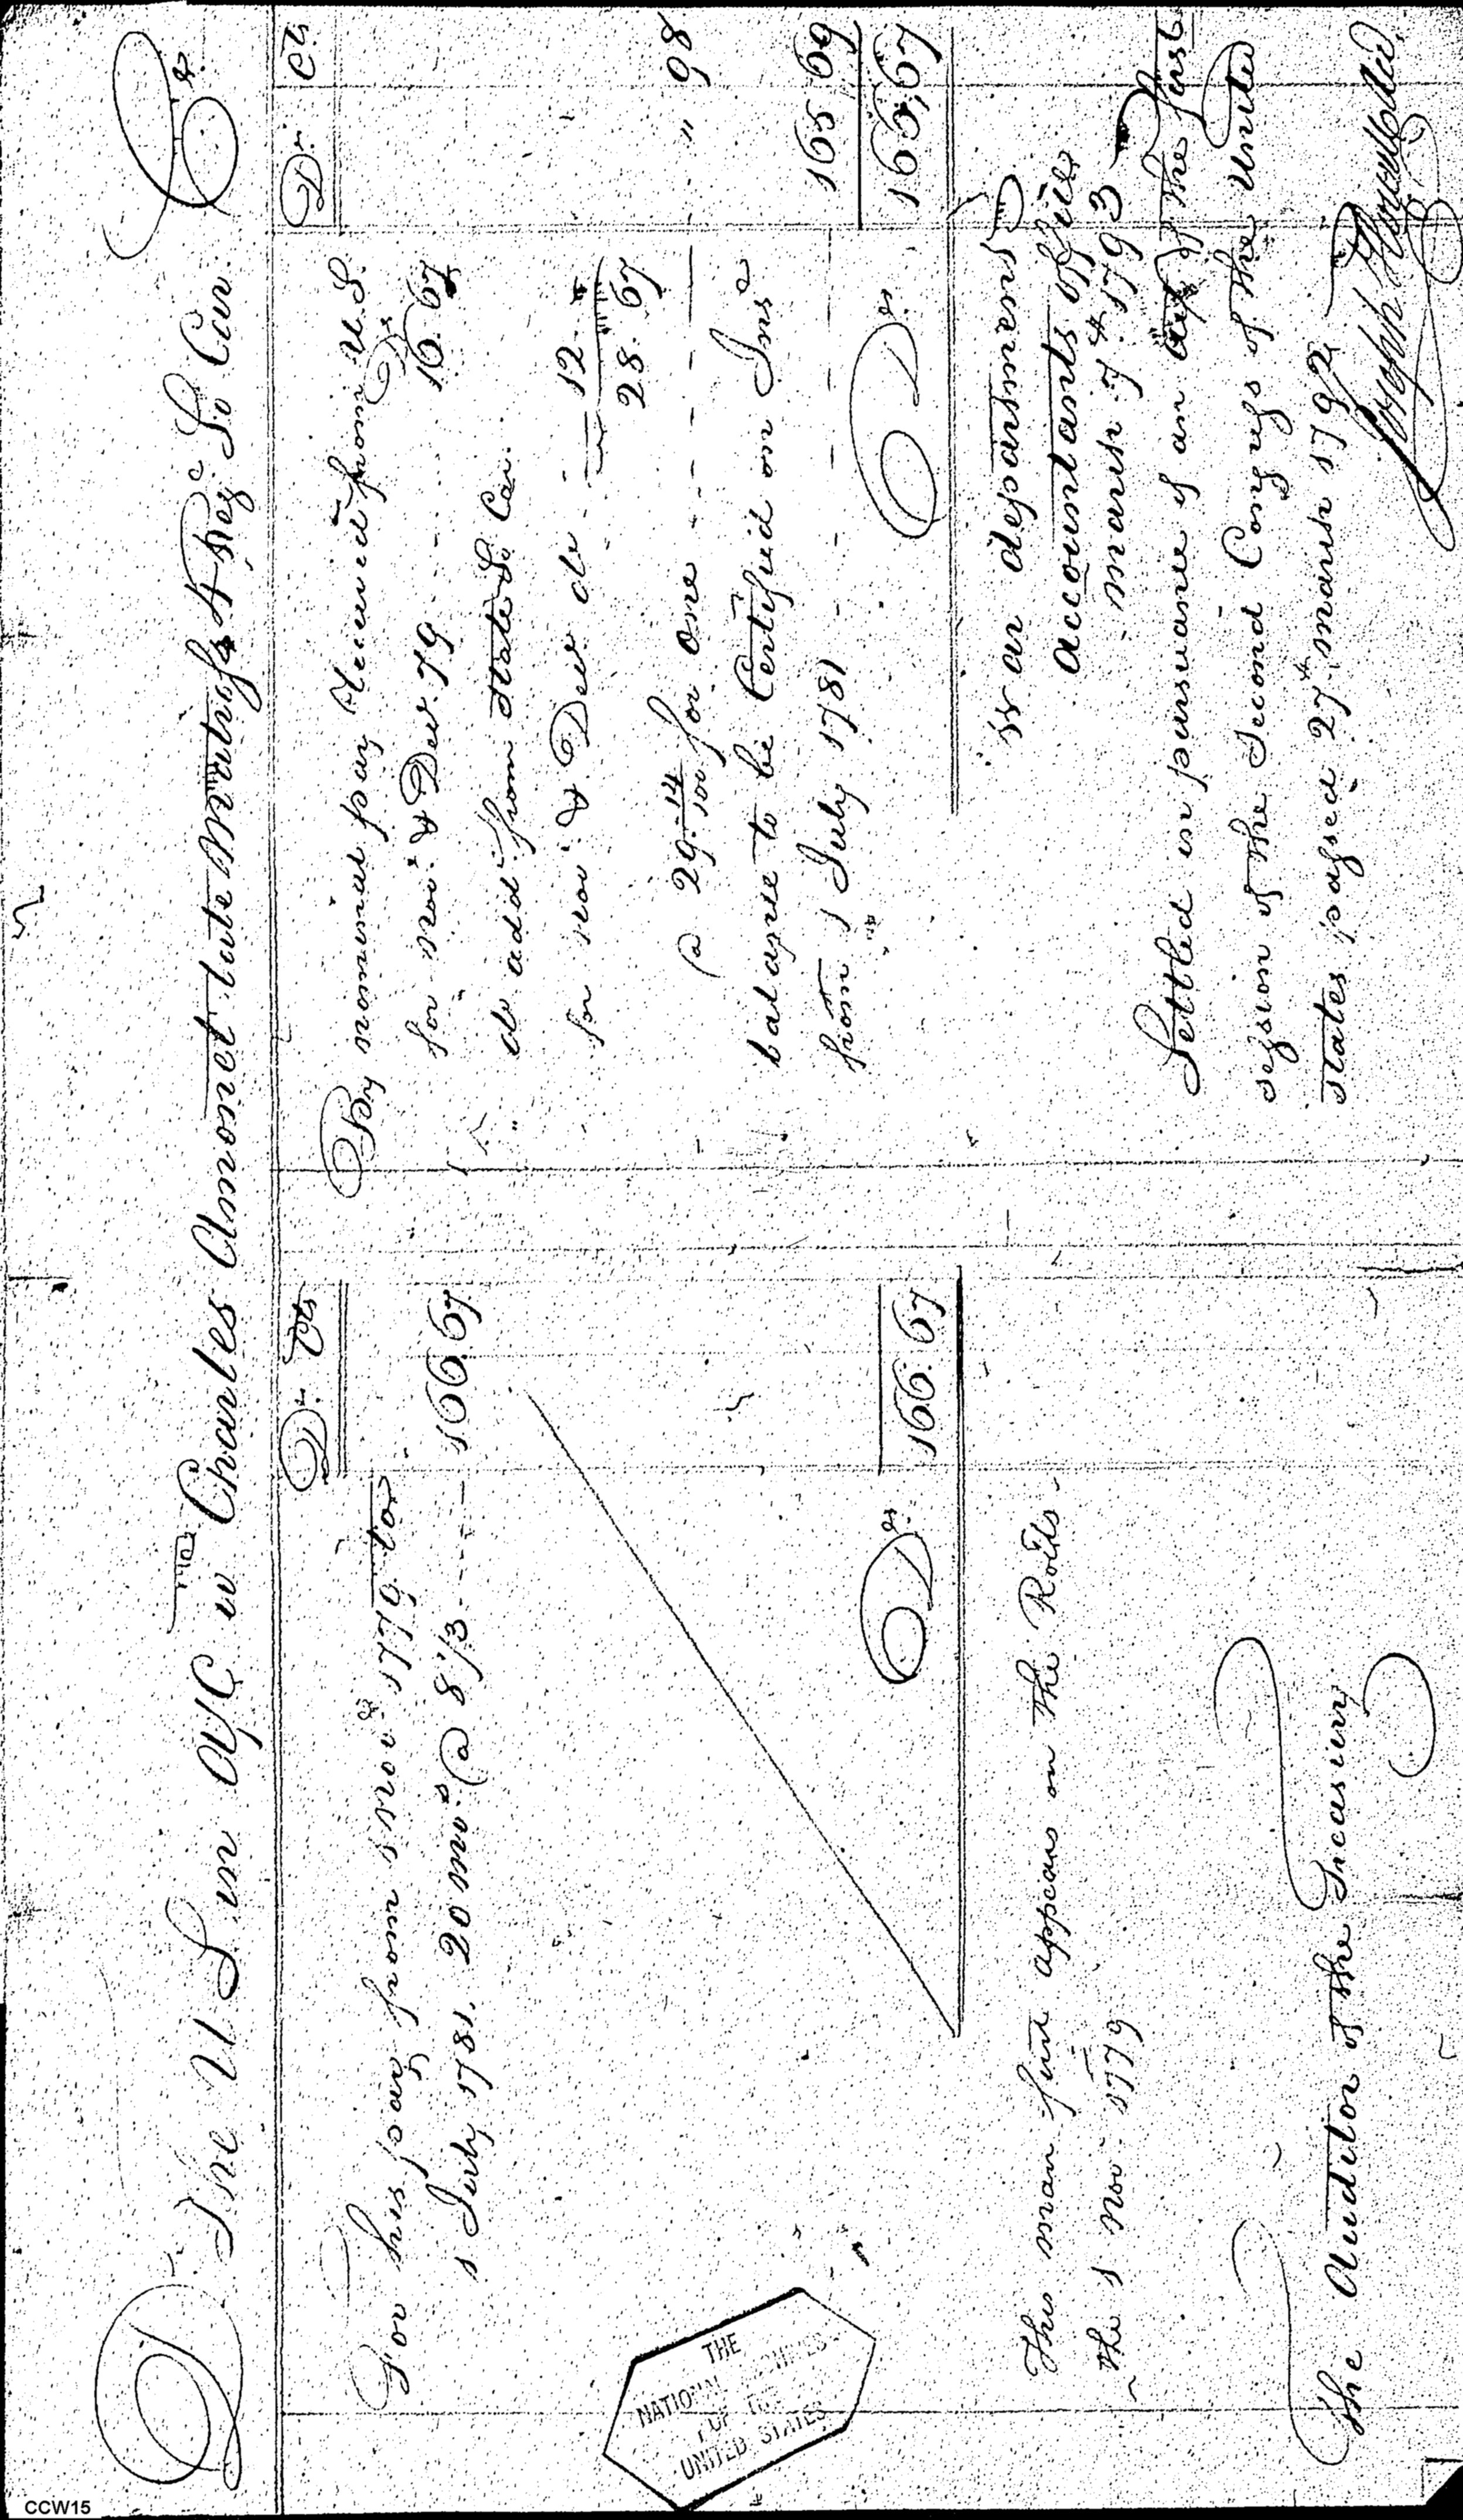 Dr The U S in a/c wth Charles Amonet late Matross 4 Regt So Car. Cr
Drs Cts
For his pay from 1 Novr 1779 to
1 July 1781. 20 mos @ 8 1/3 --- 166.67
Drs 166.67
This man first appears on the Rolls
the 1 Nov 1779
The Auditor of the Treasury
Dr. Ct.
By nominal pay Received from U.S.
for Novr & Decr 79 - - - - 16.67
" do add from State So Car.
for Novr & Decr do - - 12. "
28.67
@ 29 14/100 for one - - - - " 98
balance to be Certified on Inst
from 1 July 1781 - - - - 165 69
Drs 166,67
War department
accountants office
March 7th 1793
Settled in pursuance of an act of the first
session of the Second Congress of the United
States passed 27th March 1792
Joseph Howell
THE
NATIONAL ARCHIVES
OF THE
UNITED STATES
CCW15